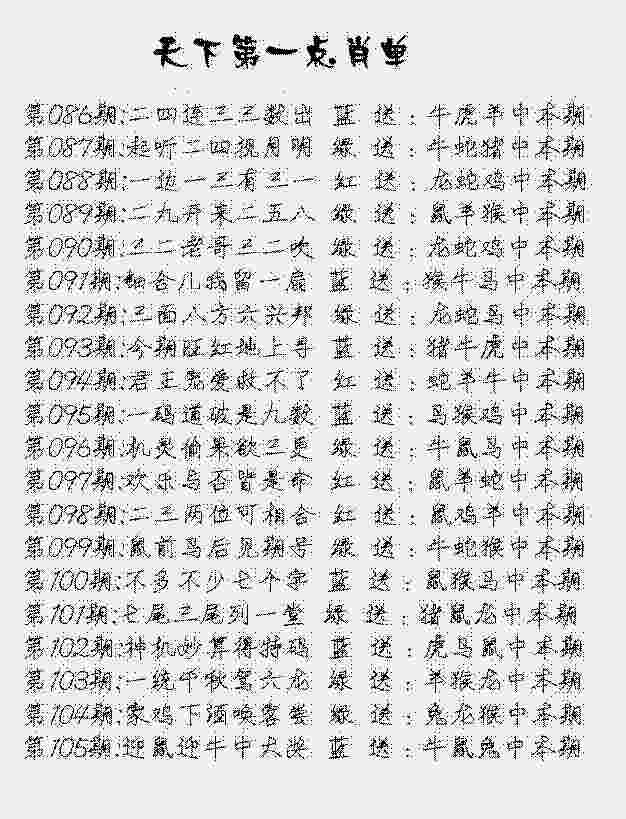 天下第一点肖单
第086期:二四连三三数出 蓝 送:牛虎羊中本期
第087期:起听二四视月明 绿 送:牛蛇猪中本期
第088期:一边一三有三一 红 送:龙蛇鸡中本期
第089期:二九开来二五八 绿 送:鼠羊猴中本期
第090期:三二老哥三二吹 绿 送:龙蛇鸡中本期
第091期:合儿我留一扇 蓝 送:猴牛马中本期
第092期:三面八方六兴邦 绿 送:龙蛇马中本期
第093期:今期旺红地上寻 蓝 送:猪牛虎中本期
第094期:君王宠爱救不了 红 送:蛇羊牛中本期
第095期:一码道破是九数 蓝 送:马猴鸡中本期
第096期:机灵偷果欲三更 绿 送:牛鼠马中本期
第097期:欢乐与否皆是命 红 送:鼠羊蛇中本期
第098期:二三两位可相合 红 送:鼠鸡羊中本期
第099期:鼠前马后见期号 绿 送:牛蛇猴中本期
第100期:不多不少七个字 蓝 送:鼠猴马中本期
第101期:七尾三尾列一堂 绿 送:猪鼠龙中本期
第102期:神机妙算得特码 蓝 送:虎马鼠中本期
第103期:一统千秋驾六龙 绿 送:羊猴龙中本期
第104期:家鸡下酒唤客尝 绿 送:兔龙猴中本期
第105期:迎鼠迎牛中大奖 蓝 送:牛鼠兔中本期